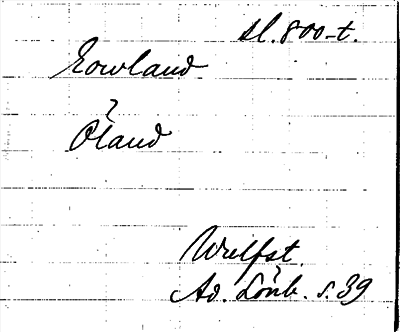 sl. 800-t.
Eowland
?
Öland
Wulfst.
Ad. Lönb. s. 39